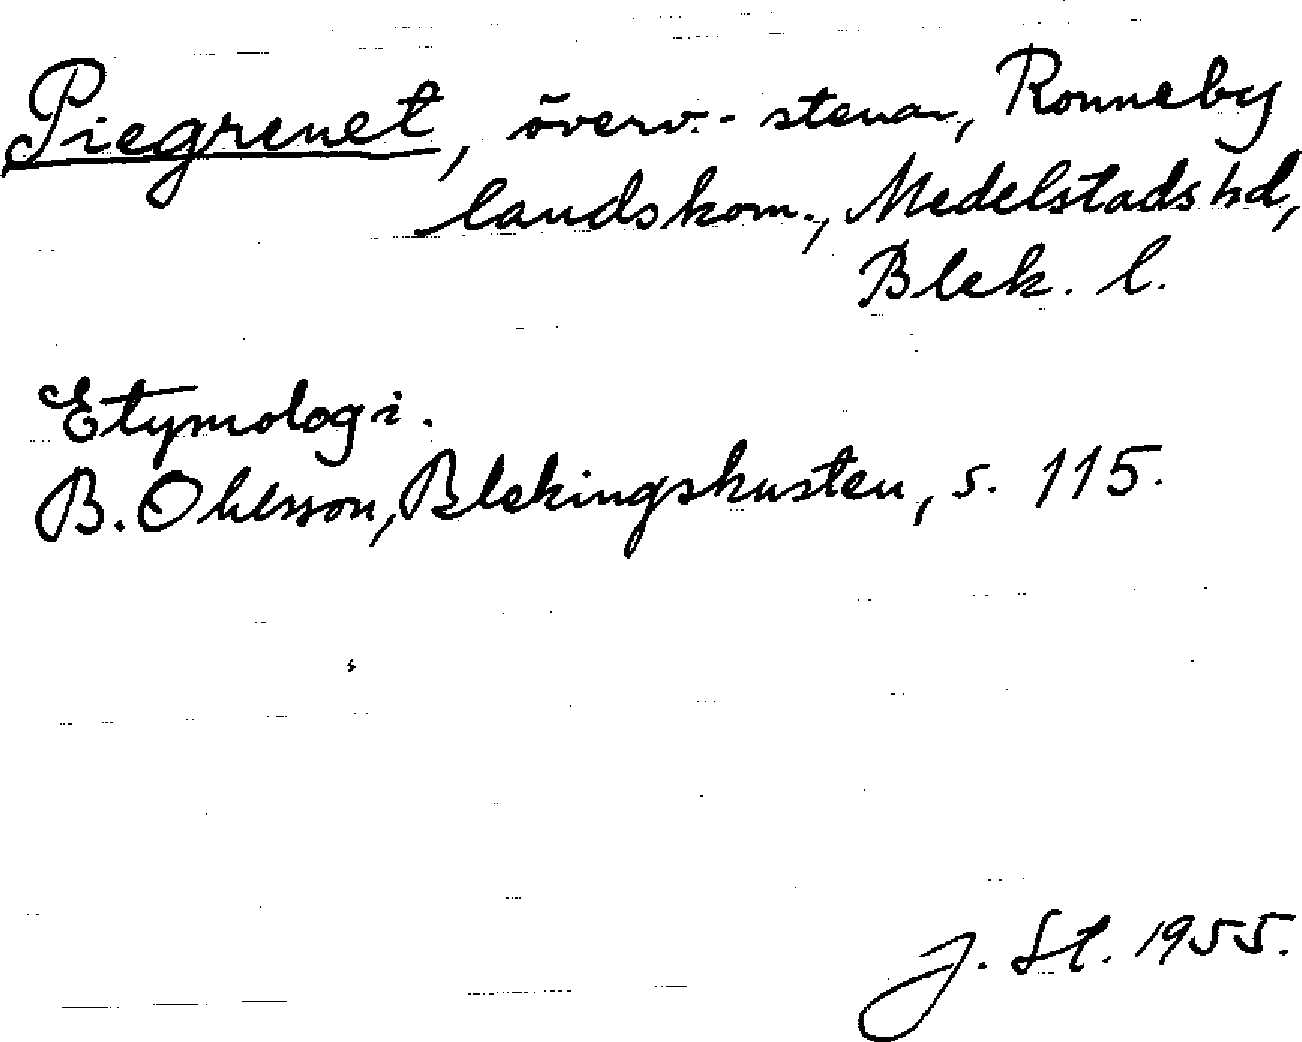 Piegrenet, överv.- stenar, Ronneby
landskom., Medelstads hd,
Blek. l.
Etymologi.
B. Ohlsson, Blekingskusten, s. 115.
J. St. 1955.